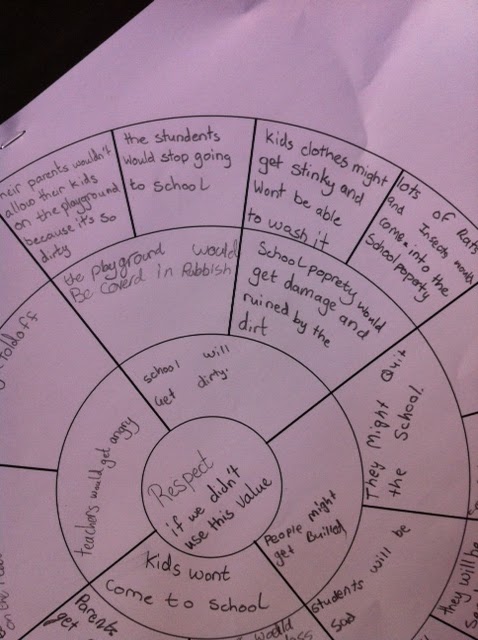 Respect
if we didn't
use this value
school will
Get dirty.
teachers would get angry
Kids wont
come to school
People might
get Bullied
the playground would
Be Coverd in Robbish
School poprety would
get damage and
ruined by the
dirt
They Might Quit
the School.
students will be
Sad
their parents wouldn't
allow their kids
on the playground
because it's so
dirty
the stundents
would stop going
to school
Kids clothes might
get stinky and
wont be able
to wash it
lots of Rats
and Insects would
come into the
School poperty
Parents
get
would
they will be